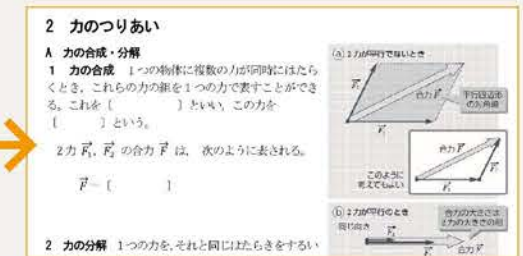 2 力のつりあい
A 力の合成・分解
1 力の合成 1つの物体に複数の力が同時にはたら
くとき、これらの力の組を1つの力で表すことができ
る。これを〔　　　〕といい、この力を
〔　　　〕という。
2力 F₁, F₂ の合力 F は、次のように表される。
F＝〔　　　〕
2 力の分解 1つの力を、それと同じはたらきをするい
(a) 2力が平行でないとき
F₂
合力 F
平行四辺形
の対角線
F₁
このように
考えてもよい
合力 F
F₂
F₁
(b) 2力が平行のとき
同じ向き
合力の大きさは
2力の大きさの和
F₂
F₁
合力 F